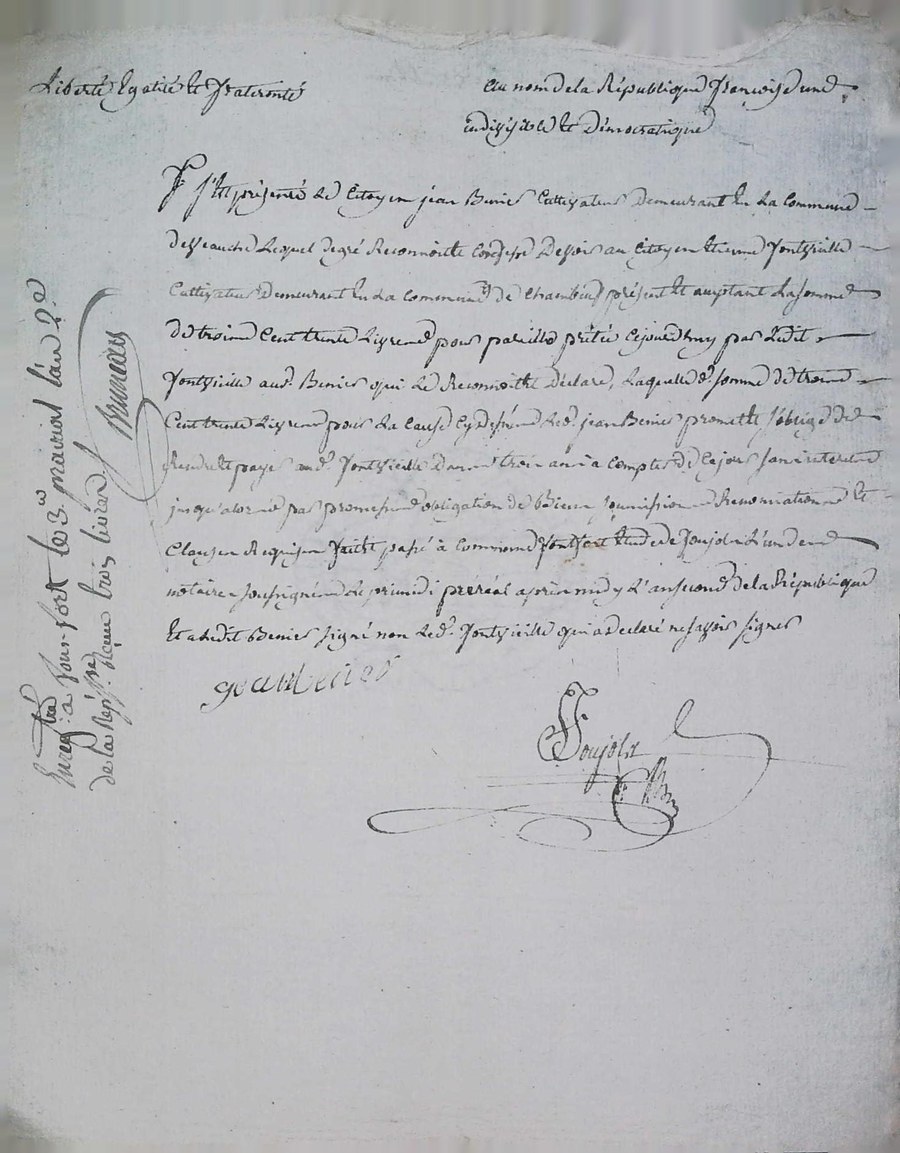 Liberté Egalité et fraternité
au nom de la République françoise une
indivisible et Démocratique
S'est présenté le Citoyen jean Benier Cultivateur Demeurant en la Commune
Lequel de gré Reconnoit et Confesse Devoir au Citoyen Etienne fontvieille
Cultivateur Demeurant en la Commune de Chambéu présent et acceptant la somme
de trois Cent trente Livres pour pareille prêtée Cejourd'huy par Ledit
fontvieille aud. Benier qui Le Reconnoit et Déclare, Laquelle d. somme de trois
Cent trente Livres pour La Cause Cy Led. jean Benier promet et s'oblige de
Rendre et payer aud. fontvieille Dans trois ans à Compter de Cejour sans interet
jusqu'alors par promesse obligation de Biens soumissions Renonciations et
Clauses Requises fait et passé à Commune fontfort Etude de Joujols L'un des
notaires soussignés Le primedi prereal après midy L'an second de la République
Et a Ledit Benier signé non Led. fontvieille qui a declaré ne savoir signer
gean benier
Joujols
Enreg.tré à fonfort le 3 prairial l'an 2.e
de la Rep. Reçu trois livres